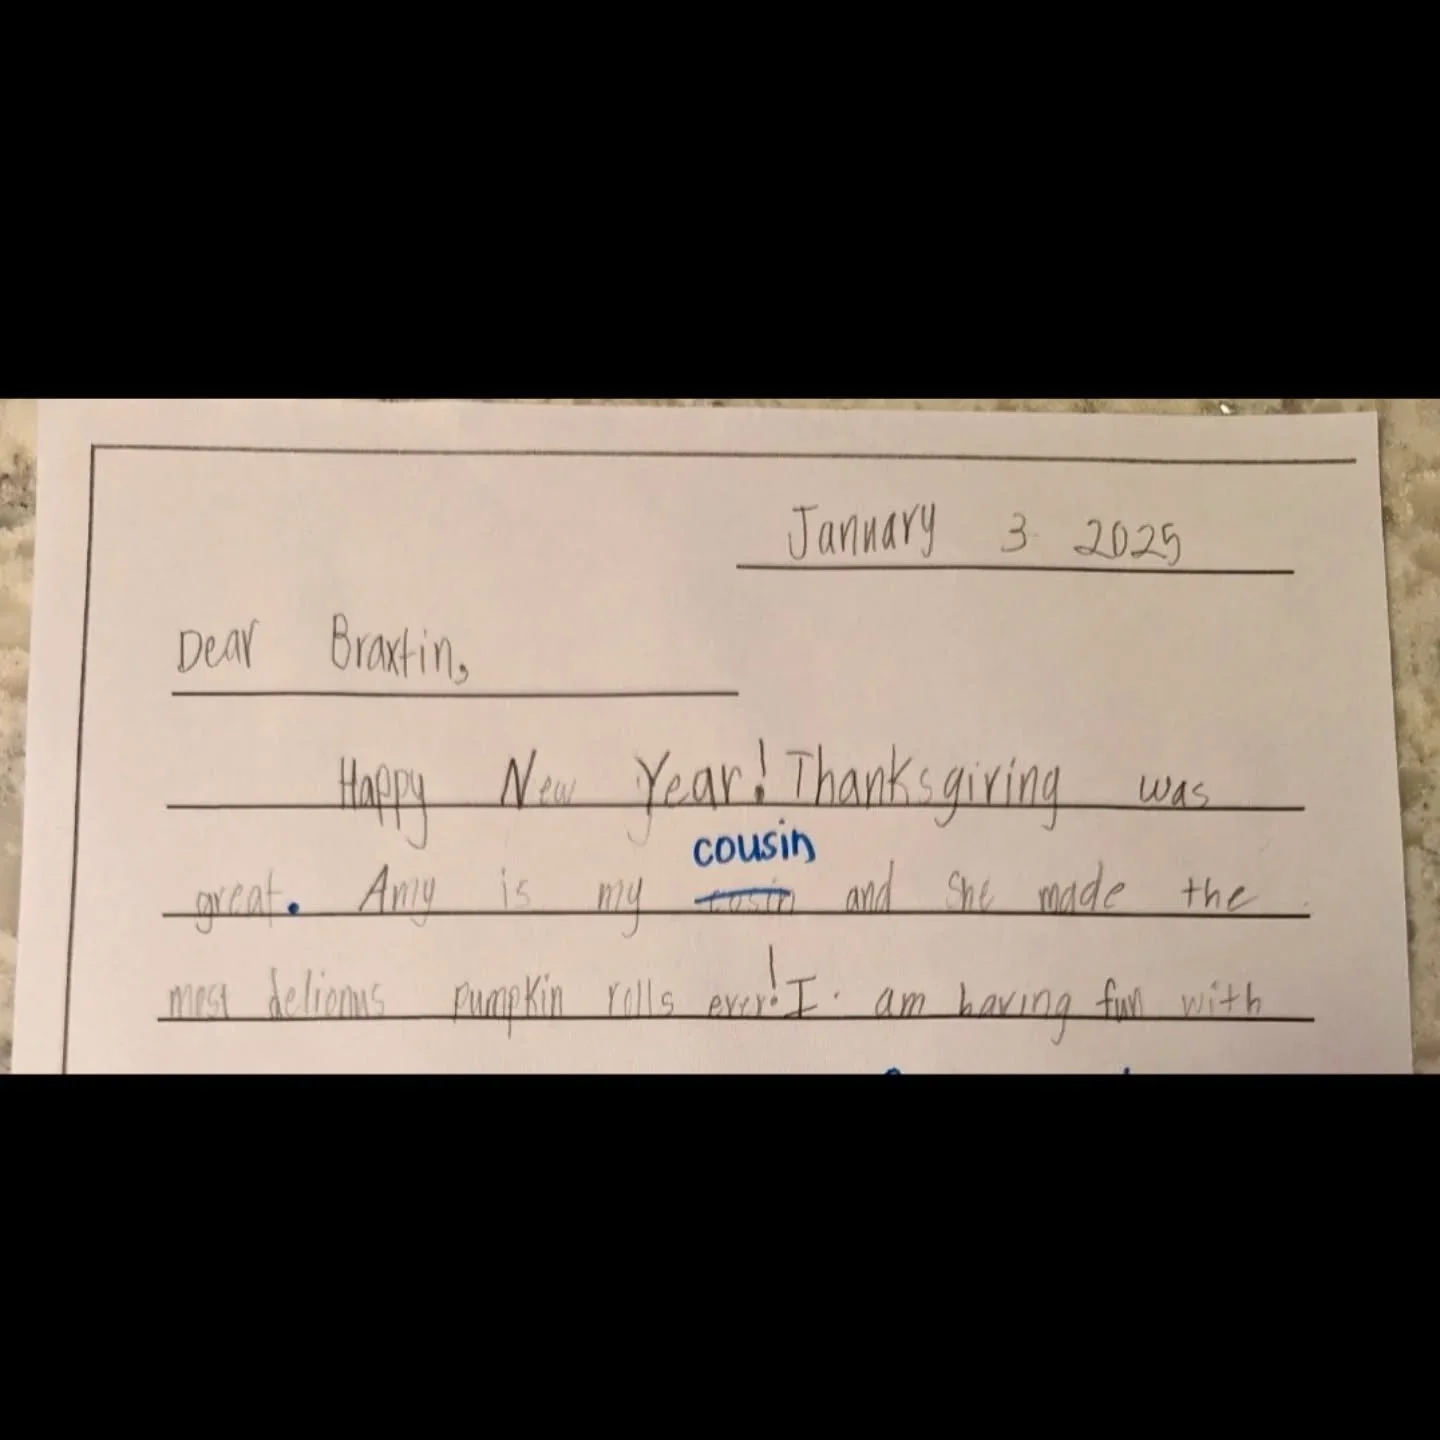 January 3 2025
Dear Braxtin,
Happy New Year! Thanksgiving was
cousin
great. Amy is my cosin and she made the
most delionus pumpkin rolls ever! I am having fun with